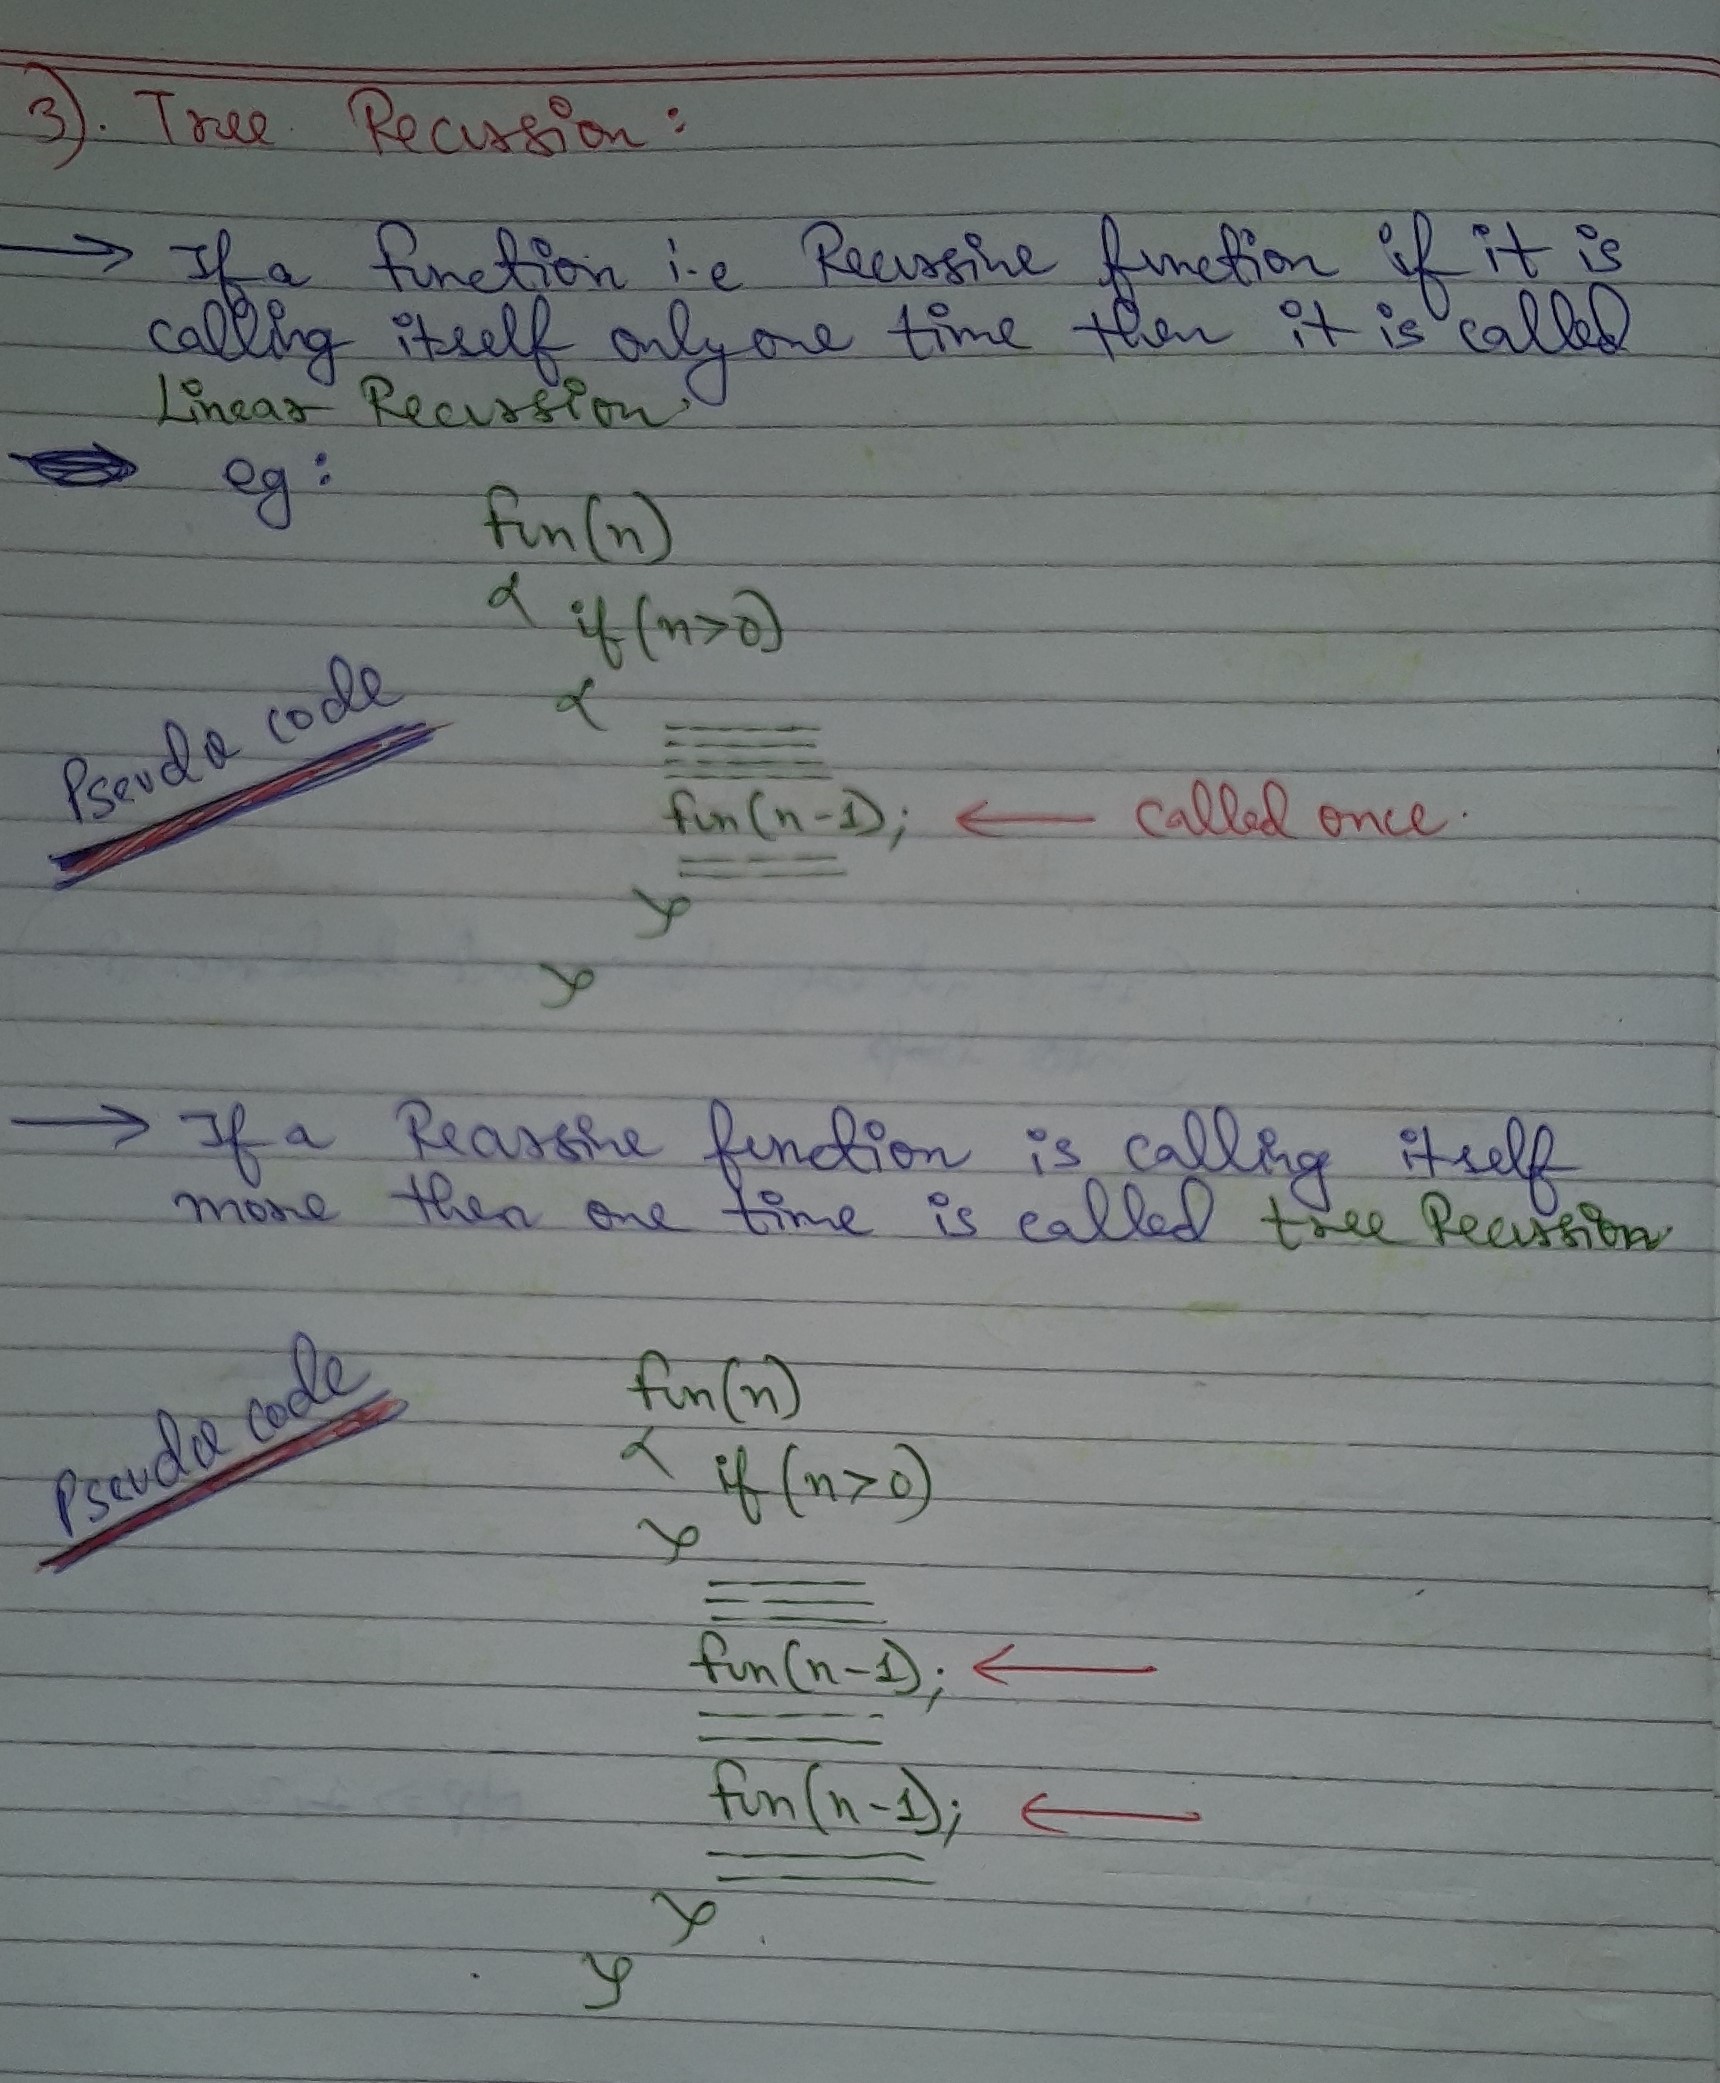 3). Tree Recussion:
→ If a function i.e Recursive function if it is
calling itself only one time then it is called
Linear Recursion.
eg:
fun(n)
{ if (n>0)
{
Pseudo code
fun(n-1); ← called once.
}
}
→ If a Recursive function is calling itself
more then one time is called tree Recursion
Pseudo code
fun(n)
{ if (n>0)
}
fun(n-1); ←
fun(n-1); ←
}
}